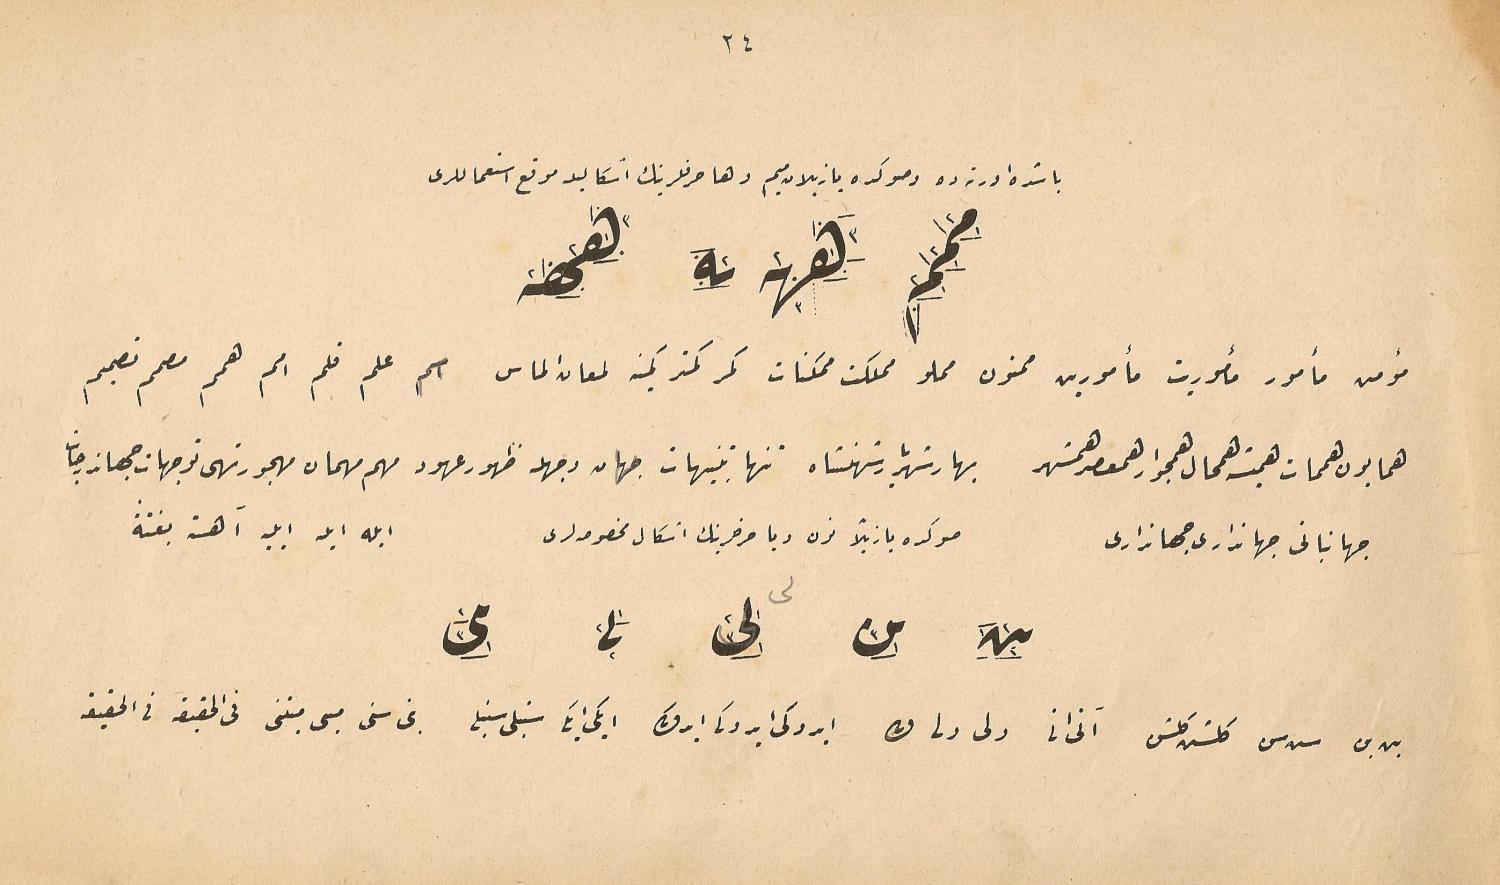 ٢٤
باشده اورته ده وصوكده يازيلان ميم وها حرفلرينك اشكاليله موقع استعماللرى
ممم ههه ـه ههمه
مؤمن مأمور مأموريت مأمورين ممنون مملو مملكت ممكنات كمر كمتر كمينه لمعان الماس اسم علم قلم امم همم مصمم تصميم
همايون هممات هميشه همحال همجوار همعصر همشهر بهار شهريار شهنشاه تنها تنبيهات جهان وجهله ظهور عهود مهم مهمان مهجور تهى توجهات جهاندرجات
جهانبانى جهاندارى جهاندارى صوكده يازيلان نون ويا حرفلرينك اشكال مخصوصه لرى ايله ايله ايليه آهسته بغتة
لى
ين ن لى لى مى
بن بن سن سن كلشن كلشن آنى انى ولى ولى ايدوكى ايدوكى ايدوك ايكى ايكى سنبلى سنبلى بنى سنى مبنى مبتنى فى الحقيقه فى الحقيقه